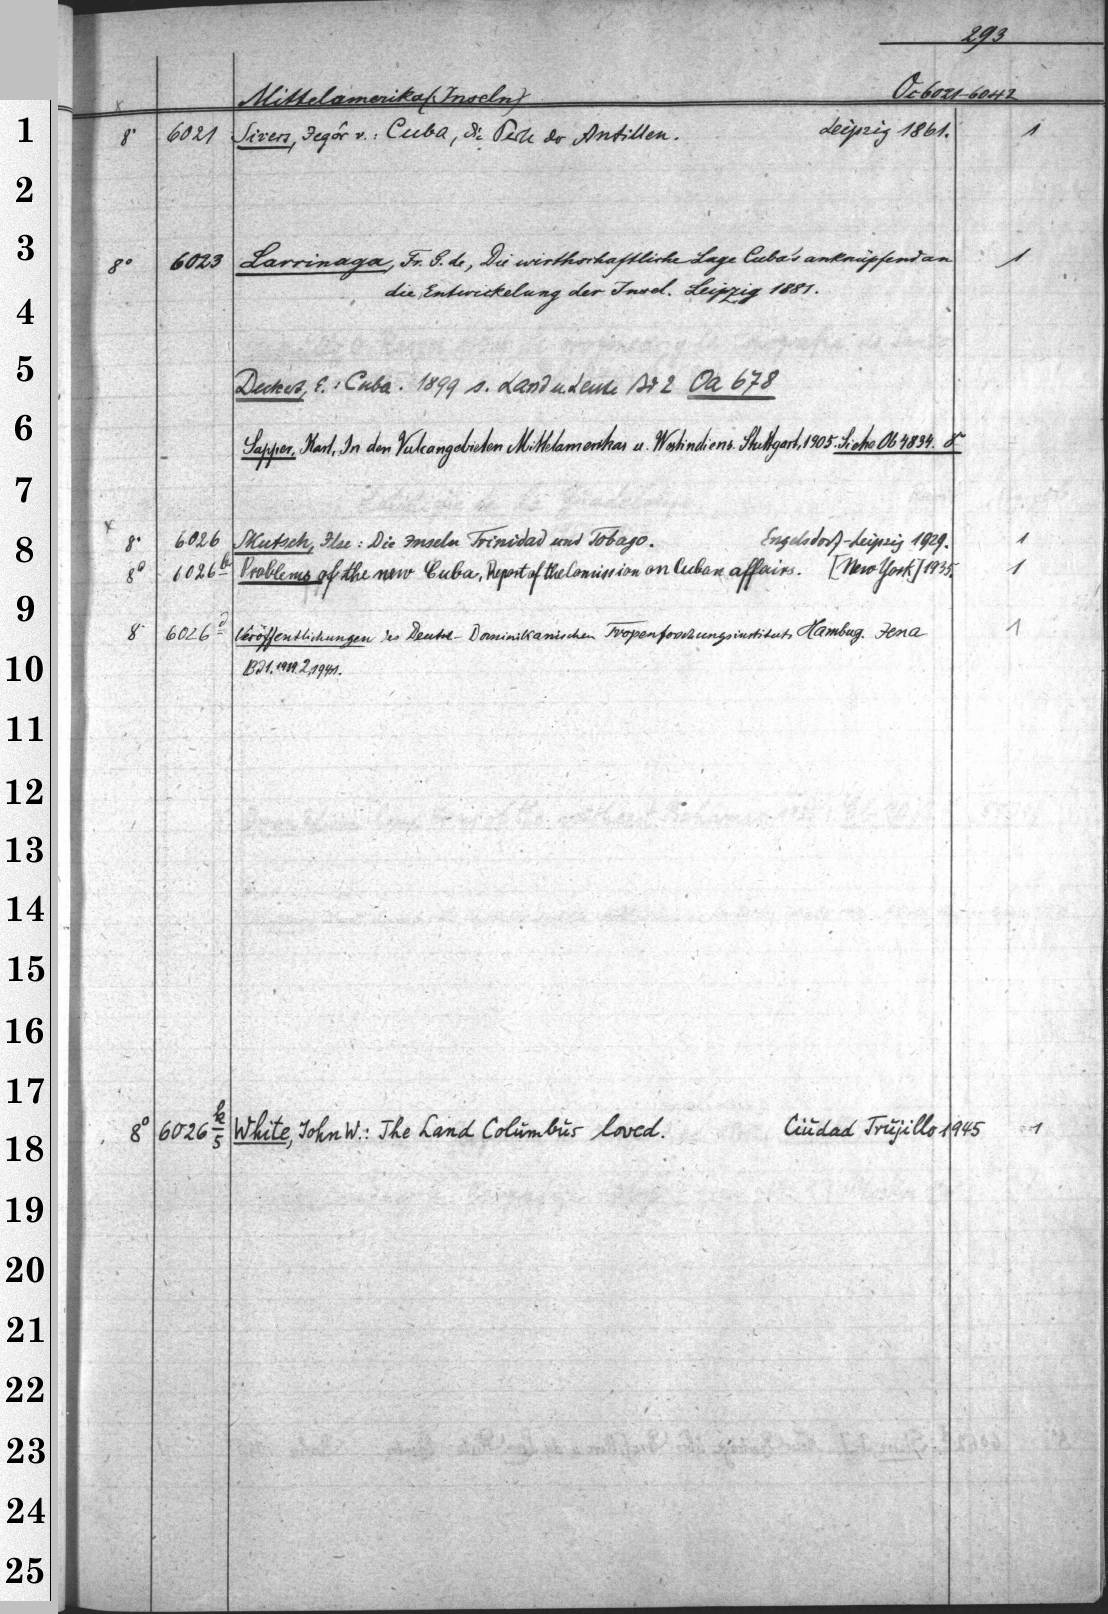 293
Mittelamerika (Inseln) Oc 6021-6042
1 8° 6021 Sivers, Jegór v.: Cuba, die Perle der Antillen. Leipzig 1861. 1
2
3 8° 6023 Larrinaga, Fr. G. de, Die wirthschaftliche Lage Cuba's anknüpfend an 1
4 die Entwickelung der Insel. Leipzig 1881.
5 Deckert, E.: Cuba. 1899 s. Land u. Leute Bd 2 Oa 678
6 Sapper, Karl, In den Vulcangebieten Mittelamerikas u. Westindiens. Stuttgart, 1905. Siehe Ob 4834. 8°
7
8 8° 6026 Skutsch, Ilse: Die Inseln Trinidad und Tobago. Engelsdorf-Leipzig 1929. 1
8° 6026 Problems of the new Cuba, Report of the Comission on Cuban affairs. [New York] 1935. 1
9 8° 6026 Veröffentlichungen des Deutsch-Dominikanischen Tropenforschungsinstituts Hamburg. Jena 1
10 Bd 1. 1939. 2, 1941.
11
12
13
14
15
16
17
18 8° 6026 k/5 White, John W.: The Land Columbus loved. Ciudad Trujillo 1945 1
19
20
21
22
23
24
25